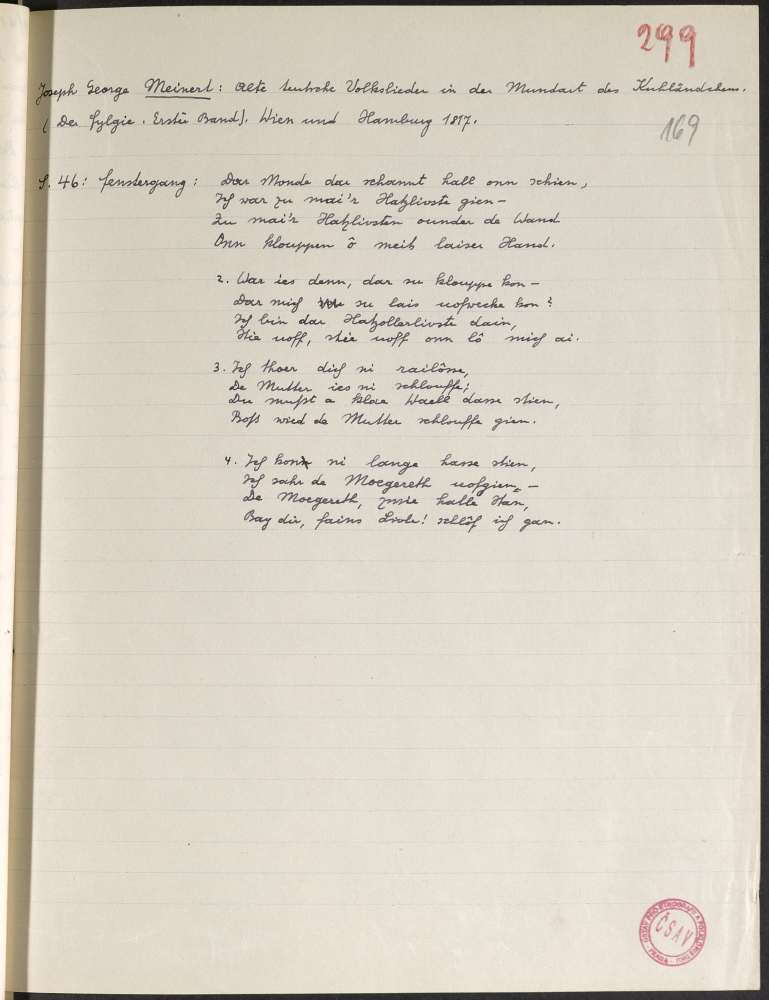 299
Joseph George Meinert: Alte teutsche Volkslieder in der Mundart des Kuhländchens.
(Der Fylgie. Erster Band). Wien und Hamburg 1817.
169
S. 46: Fenstergang: Dar Monde dar schannt hall onn schien,
Ich war zu mai'r Hatzlivste gien –
Zu mai'r Hatzlivsten ounder de Wand
Onn klouppen ô meib laiser Hand.
2. War ies denn, dar su klouppe kon –
Dar mich su lais uofwecke kon?
Ich bin dar Hatzollerlivste dain,
Stie uoff, stie uoff onn lô mich ai.
3. Ich thoer dich ni railôsse,
De Mutter ies ni schlouffe;
Du mußt a klae Waell dasse stien,
Boß wied de Mutter schlouffe gien.
4. Ich kon ni lange hasse stien,
Ich sahr de Moegereth uofgien, –
De Moegereth, zwie halle Stan,
Bay dir, fains Livle! schlôf ich gan.
ČSAV
PRAHA